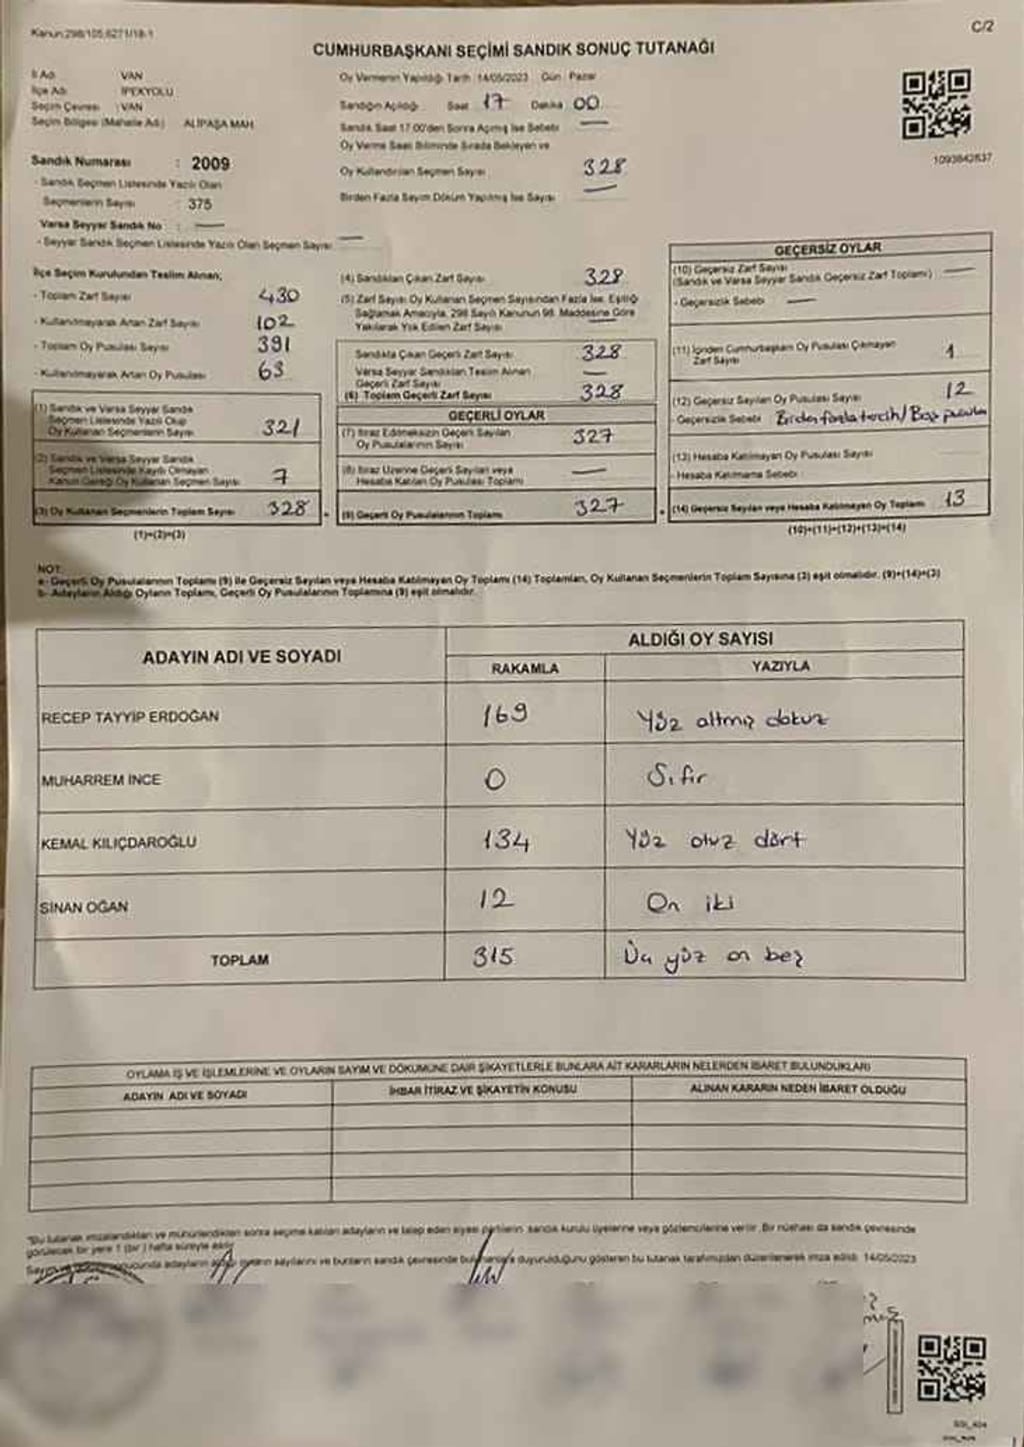 Kanun:298/105,6271/18-1
C/2
CUMHURBAŞKANI SEÇİMİ SANDIK SONUÇ TUTANAĞI
İl Adı VAN
İlçe Adı İPEKYOLU
Seçim Çevresi : VAN
Seçim Bölgesi (Mahalle Adı) ALİPAŞA MAH.
Sandık Numarası : 2009
- Sandık Seçmen Listesinde Yazılı Olan
Seçmenlerin Sayısı : 375
Varsa Seyyar Sandık No : —
- Seyyar Sandık Seçmen Listesinde Yazılı Olan Seçmen Sayısı —
Oy Vermenin Yapıldığı Tarih : 14/05/2023 Gün : Pazar
Sandığın Açıldığı Saat 17 Dakika 00
Sandık Saat 17:00'den Sonra Açılmış İse Sebebi —
Oy Verme Saati Bitiminde Sırada Bekleyen ve
Oy Kullandırılan Seçmen Sayısı 328
Birden Fazla Sayım Döküm Yapılmış İse Sayısı —
1093842637
İlçe Seçim Kurulundan Teslim Alınan;
- Toplam Zarf Sayısı 430
- Kullanılmayarak Artan Zarf Sayısı 102
- Toplam Oy Pusulası Sayısı 391
- Kullanılmayarak Artan Oy Pusulası 63
(1) Sandık ve Varsa Seyyar Sandık
Seçmen Listesinde Yazılı Olup
Oy Kullanan Seçmenlerin Sayısı 321
(2) Sandık ve Varsa Seyyar Sandık
Seçmen Listesinde Kayıtlı Olmayan
Kanun Gereği Oy Kullanan Seçmen Sayısı 7
(3) Oy Kullanan Seçmenlerin Toplam Sayısı 328
(1)+(2)=(3)
(4) Sandıktan Çıkan Zarf Sayısı 328
(5) Zarf Sayısı Oy Kullanan Seçmen Sayısından Fazla İse, Eşitliği
Sağlamak Amacıyla, 298 Sayılı Kanunun 98. Maddesine Göre
Yakılarak Yok Edilen Zarf Sayısı —
Sandıkta Çıkan Geçerli Zarf Sayısı 328
Varsa Seyyar Sandıktan Teslim Alınan
Geçerli Zarf Sayısı —
(6) Toplam Geçerli Zarf Sayısı 328
GEÇERLİ OYLAR
(7) İtiraz Edilmeksizin Geçerli Sayılan
Oy Pusulalarının Sayısı 327
(8) İtiraz Üzerine Geçerli Sayılan veya
Hesaba Katılan Oy Pusulası Toplamı —
(9) Geçerli Oy Pusulalarının Toplamı 327
GEÇERSİZ OYLAR
(10) Geçersiz Zarf Sayısı
(Sandık ve Varsa Seyyar Sandık Geçersiz Zarf Toplamı) —
- Geçersizlik Sebebi —
(11) İçinden Cumhurbaşkanı Oy Pusulası Çıkmayan
Zarf Sayısı 1
(12) Geçersiz Sayılan Oy Pusulası Sayısı 12
- Geçersizlik Sebebi Birden fazla tercih/Boş pusula
(13) Hesaba Katılmayan Oy Pusulası Sayısı
- Hesaba Katılmama Sebebi
(14) Geçersiz Sayılan veya Hesaba Katılmayan Oy Toplamı 13
(10)+(11)+(12)+(13)=(14)
NOT:
a- Geçerli Oy Pusulalarının Toplamı (9) ile Geçersiz Sayılan veya Hesaba Katılmayan Oy Toplamı (14) Toplamları, Oy Kullanan Seçmenlerin Toplam Sayısına (3) eşit olmalıdır. (9)+(14)=(3)
b- Adayların Aldığı Oyların Toplamı, Geçerli Oy Pusulalarının Toplamına (9) eşit olmalıdır.
ADAYIN ADI VE SOYADI
ALDIĞI OY SAYISI
RAKAMLA YAZIYLA
RECEP TAYYİP ERDOĞAN 169 Yüz altmış dokuz
MUHARREM İNCE 0 Sıfır
KEMAL KILIÇDAROĞLU 134 Yüz otuz dört
SİNAN OĞAN 12 On iki
TOPLAM 315 Üç yüz on beş
OYLAMA İŞ VE İŞLEMLERİNE VE OYLARIN SAYIM VE DÖKÜMÜNE DAİR ŞİKAYETLERLE BUNLARA AİT KARARLARIN NELERDEN İBARET BULUNDUKLARI
ADAYIN ADI VE SOYADI İHBAR İTİRAZ VE ŞİKAYETİN KONUSU ALINAN KARARIN NEDEN İBARET OLDUĞU
*Bu tutanak imzalandıktan ve mühürlendikten sonra seçime katılan adayların ve talep eden siyasi partilerin sandık kurulu üyelerine veya gözlemcilerine verilir. Bir nüshası da sandık çevresinde
görülecek bir yere 1 (bir) hafta süreyle asılır.
adayların sayılarını ve bunların sandık çevresinde duyurulduğunu gösteren bu tutanak tarafımızdan düzenlenerek imza edildi. 14/05/2023